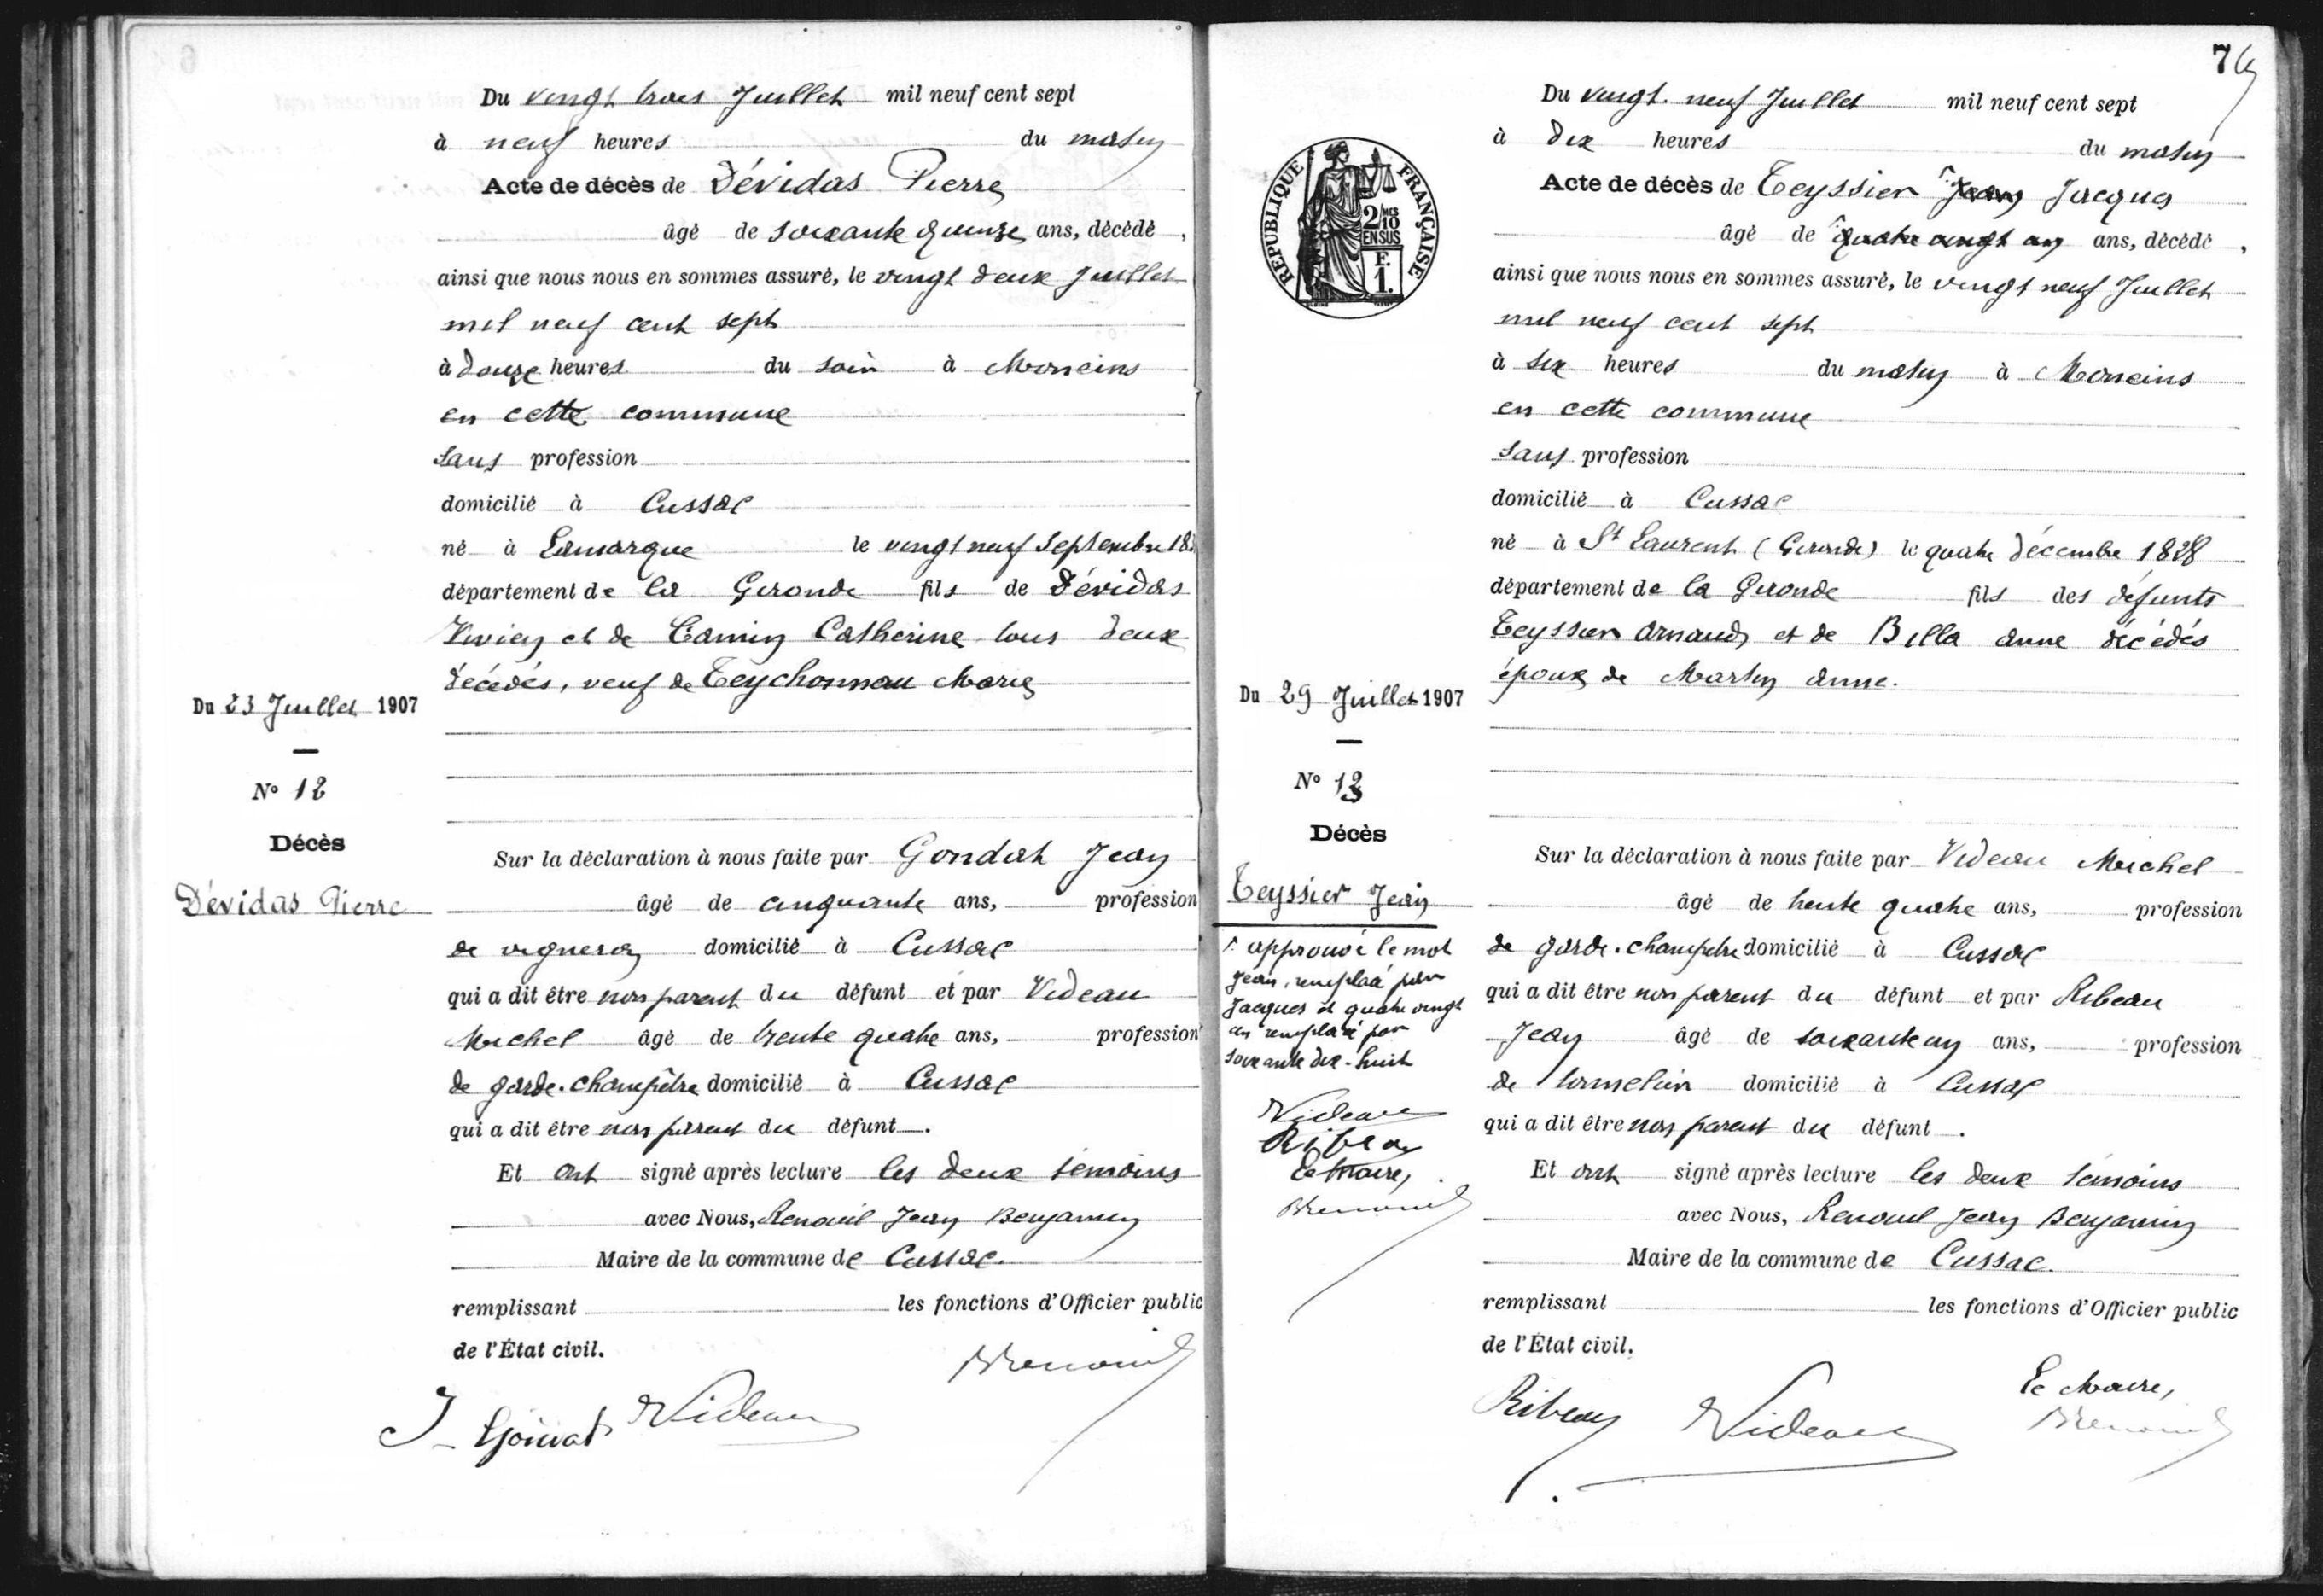 Du vingt trois Juillet mil neuf cent sept
à neuf heures du matin
Acte de décès de Dévidas Pierre
âgé de soixante quinze ans, décédé,
ainsi que nous nous en sommes assuré, le vingt deux Juillet
mil neuf cent sept
à douze heures du soir à Moneins
en cette commune
sans profession
domicilié à Cussac
né à Lamarque le vingt neuf Septembre 18
département de la Gironde fils de Dévidas
Vivien et de Camin Catherine tous deux
décédés, veuf de Teychonnau Marie
Du 23 Juillet 1907
N° 12
Décès
Dévidas Pierre
Sur la déclaration à nous faite par Gondat Jean
âgé de cinquante ans, profession
de vigneron domicilié à Cussac
qui a dit être non parent du défunt et par Videau
Michel âgé de trente quatre ans, profession
de garde-champêtre domicilié à Cussac
qui a dit être non parent du défunt.
Et ont signé après lecture les deux témoins
avec Nous, Renouil Jean Benjamin
Maire de la commune de Cussac.
remplissant les fonctions d'Officier public
de l'État civil.
BRenouil
J Gondat Videau
7
RÉPUBLIQUE FRANÇAISE
2/10 EN SUS
F. 1.
Du vingt-neuf Juillet mil neuf cent sept
à dix heures du matin
Acte de décès de Teyssier Jean Jacques
âgé de quatre vingt un ans, décédé,
ainsi que nous nous en sommes assuré, le vingt neuf Juillet
mil neuf cent sept
à six heures du matin à Moneins
en cette commune
sans profession
domicilié à Cussac
né à St Laurent (Gironde) le quatre décembre 1828
département de la Gironde fils des défunts
Teyssier Arnaud et de Billa Anne décédés
époux de Martin Anne.
Du 29 Juillet 1907
N° 13
Décès
Teyssier Jean
approuvé le mot
Jean, remplacé par
Jacques et quatre vingt
un remplacé par
soixante dix-huit
Videau
Ribeau
Le Maire,
BRenouil
Sur la déclaration à nous faite par Videau Michel
âgé de trente quatre ans, profession
de garde-champêtre domicilié à Cussac
qui a dit être non parent du défunt et par Ribeau
Jean âgé de soixante un ans, profession
de domicilié à Cussac
qui a dit être non parent du défunt.
Et ont signé après lecture les deux témoins
avec Nous, Renouil Jean Benjamin
Maire de la commune de Cussac.
remplissant les fonctions d'Officier public
de l'État civil.
Le Maire,
Ribeau Videau BRenouil